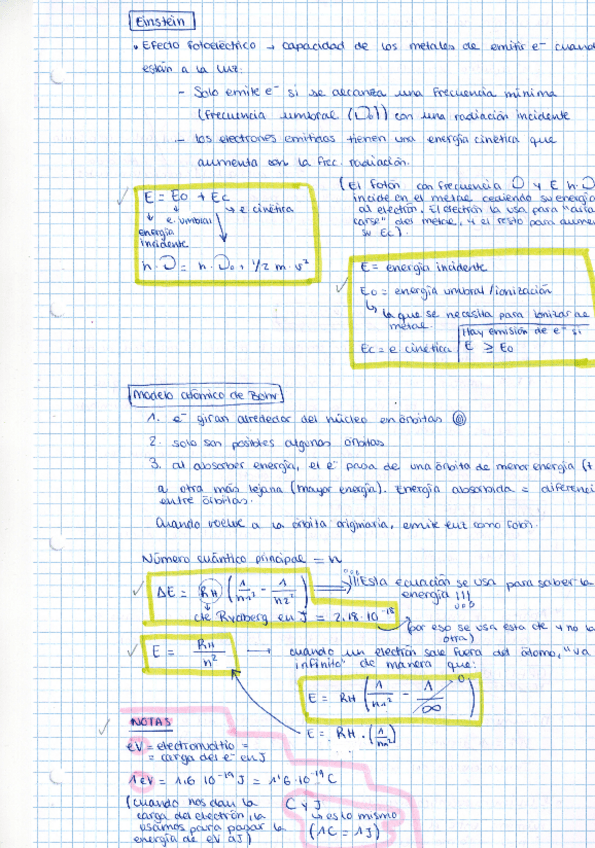 Einstein
• Efecto fotoeléctrico → capacidad de los metales de emitir e⁻ cuando
están a la luz.
- Solo emite e⁻ si se alcanza una frecuencia mínima
(frecuencia umbral (ν₀)) con una radiación incidente
- los electrones emitidos tienen una energía cinética que
aumenta con la frec. radiación.
(El fotón con frecuencia ν y E h·ν
incide en el metal cediendo su energía
al electrón. El electrón la usa para
"carse" del metal, y el resto para
su Ec).
E = E₀ + Ec
→ e cinética
e. umbral
energía
incidente
h·ν = h·ν₀ + 1/2 m·v²
E = energía incidente
E₀ = energía umbral/ionización
↳ la que se necesita para ionizar al
metal.
Ec = e cinética
Hay emisión de e⁻ si
E ≥ E₀
Modelo atómico de Bohr
1. e⁻ giran alrededor del núcleo en órbitas
2. solo son posibles algunas órbitas
3. al absorber energía, el e⁻ pasa de una órbita de menor energía (+
a otra más lejana (mayor energía). Energía absorbida = diferenci
entre órbitas.
Cuando vuelve a la órbita originaria, emite luz como fotón.
Número cuántico principal = n
ΔE = RH (1/n₁² - 1/n₂²) ⟹ ¡¡¡Esta ecuación se usa para saber la
energía !!!
cte Rydberg en J = 2,18·10⁻¹⁸
(por eso se usa esta cte y no la
otra)
E = RH/n² → cuando un electrón sale fuera del átomo, "va
infinito" de manera que:
E = RH (1/n₁² - 1/∞) 0
E = RH · (1/n₁²)
NOTAS
eV = electronvoltio =
= carga del e⁻ en J
1 eV = 1,6·10⁻¹⁹ J = 1'6·10⁻¹⁹ C
(cuando nos dan la
carga del electrón, la
usamos para pasar la
energía de eV a J)
C y J
↳ es lo mismo
(1C = 1J)